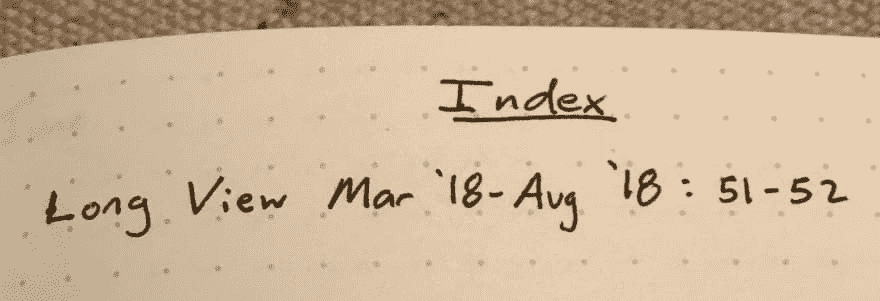 Index
Long View Mar '18-Aug '18: 51-52